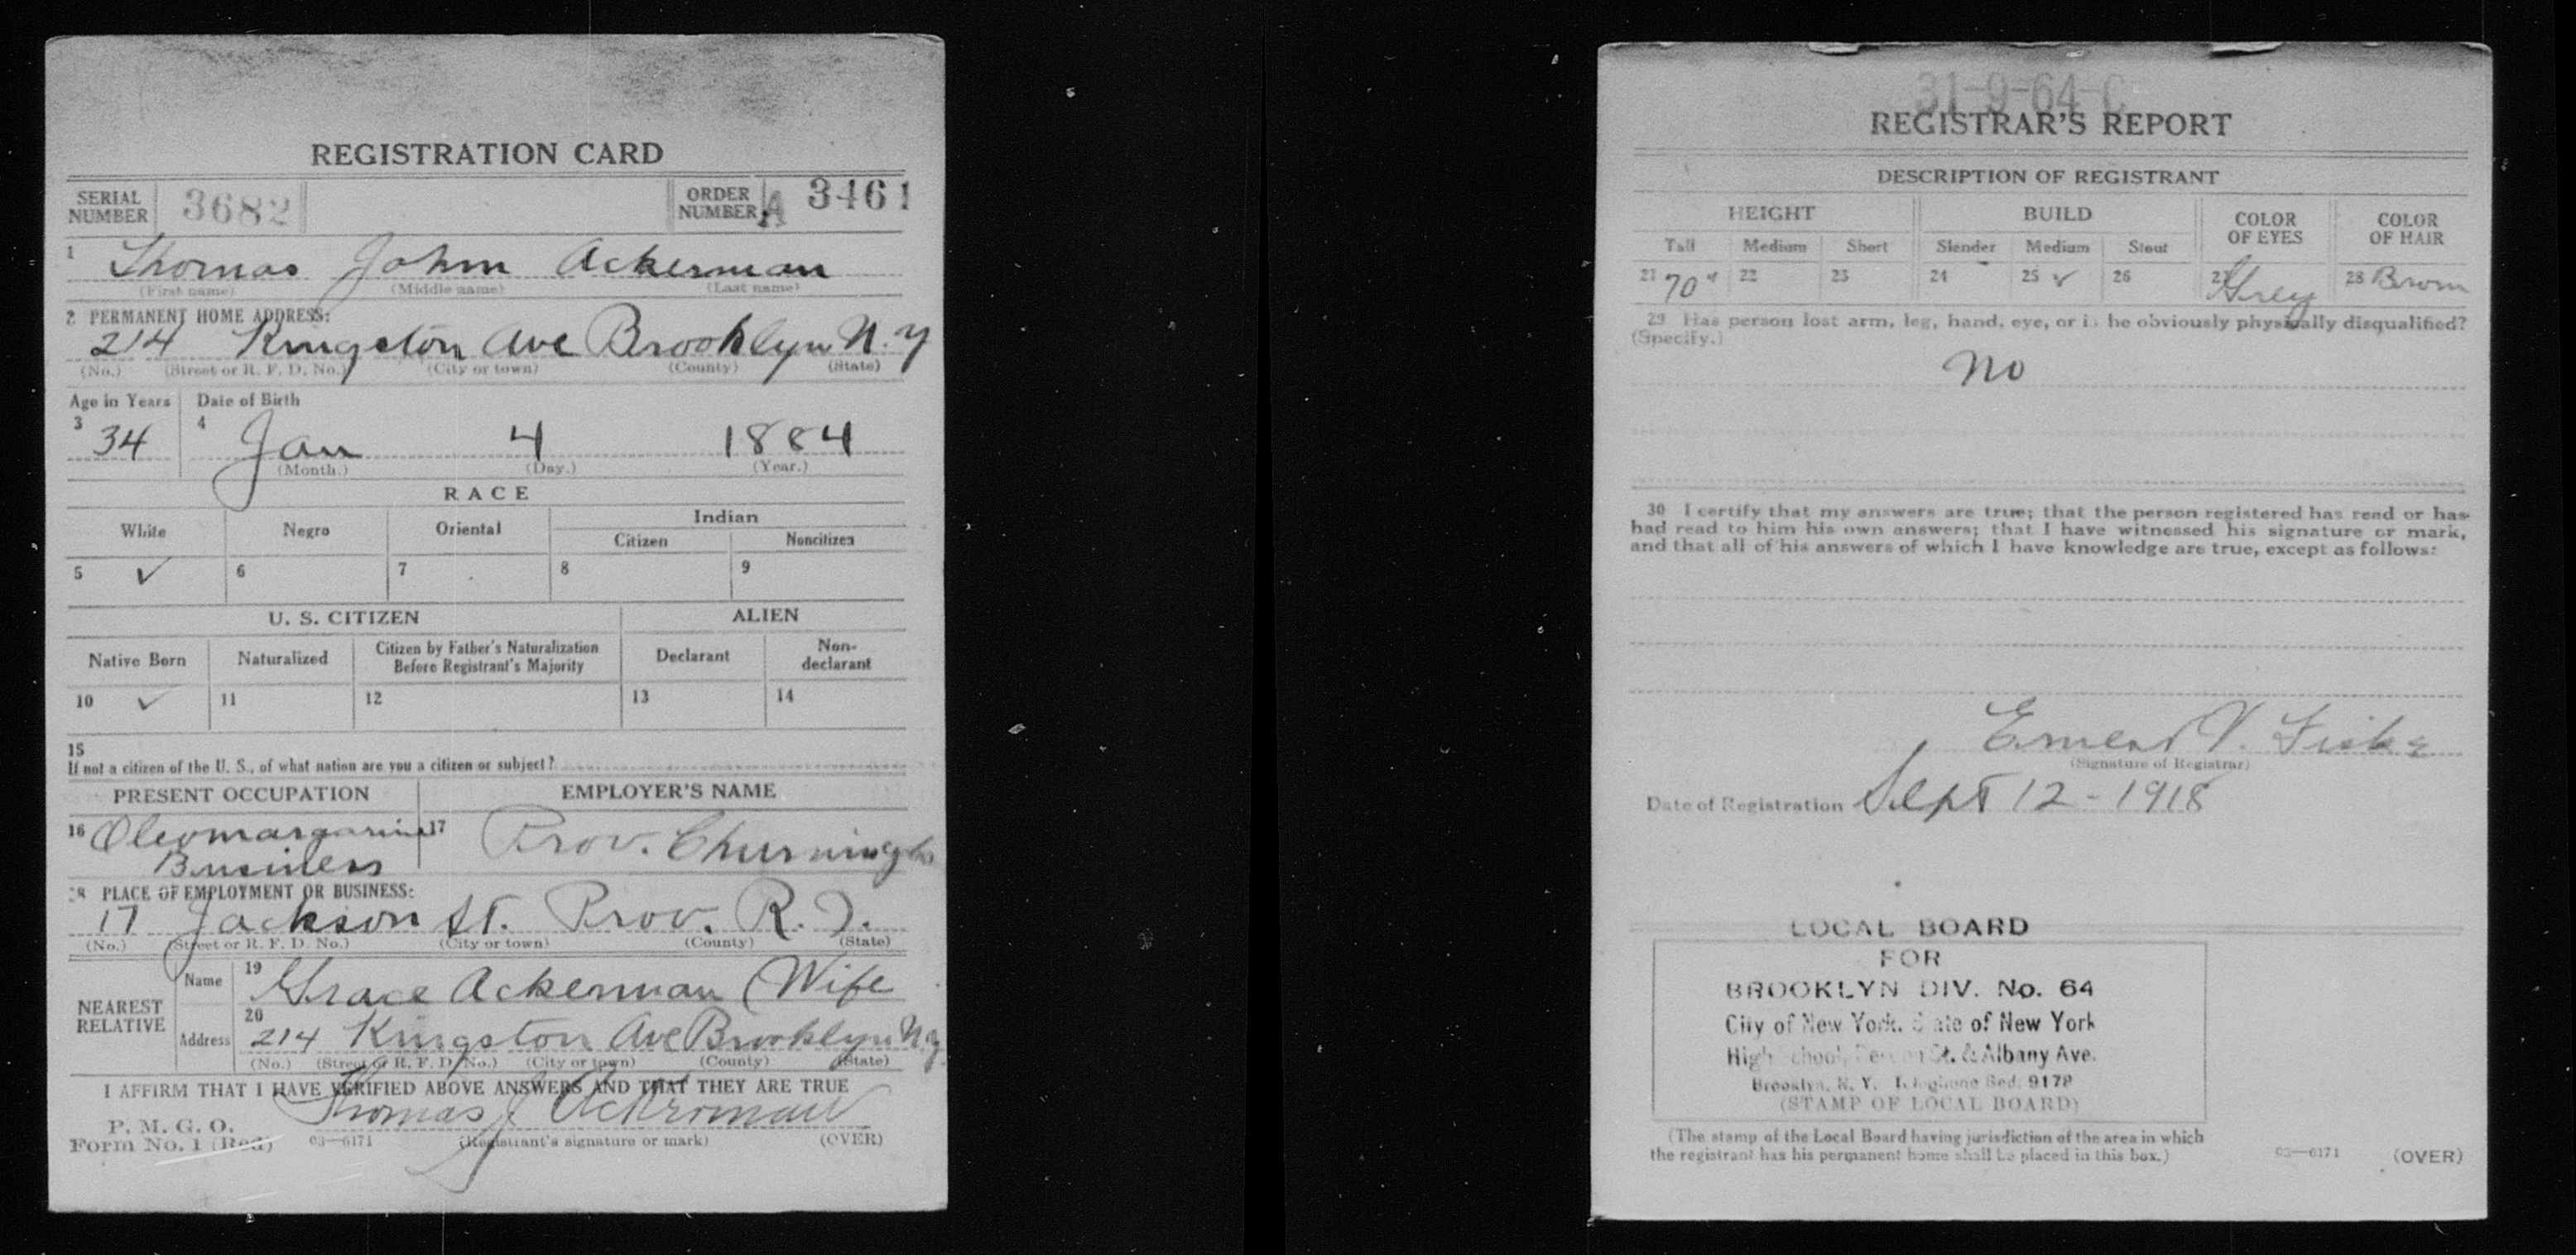 REGISTRATION CARD
SERIAL NUMBER 3682 ORDER NUMBER A 3461
1 Thomas John Ackerman
(First name) (Middle name) (Last name)
2 PERMANENT HOME ADDRESS:
214 Kingston Ave Brooklyn N.Y
(No.) (Street or R. F. D. No.) (City or town) (County) (State)
Age in Years Date of Birth
3 34 4 Jan 4 1884
(Month.) (Day.) (Year.)
RACE
White Negro Oriental Indian
Citizen Noncitizen
5 ✓ 6 7 8 9
U. S. CITIZEN ALIEN
Native Born Naturalized Citizen by Father's Naturalization Before Registrant's Majority Declarant Non-declarant
10 ✓ 11 12 13 14
15
If not a citizen of the U. S., of what nation are you a citizen or subject?
PRESENT OCCUPATION EMPLOYER'S NAME
16 Oleomargarine 17 Prov. Churning Co
Business
18 PLACE OF EMPLOYMENT OR BUSINESS:
17 Jackson St. Prov. R. I.
(No.) (Street or R. F. D. No.) (City or town) (County) (State)
NEAREST RELATIVE
Name 19 Grace Ackerman (Wife
Address 20 214 Kingston Ave Brooklyn N.Y
(No.) (Street or R. F. D. No.) (City or town) (County) (State)
I AFFIRM THAT I HAVE VERIFIED ABOVE ANSWERS AND THAT THEY ARE TRUE
Thomas J Ackerman
P. M. G. O.
Form No. 1 (Red) 03—6171 (Registrant's signature or mark) (OVER)
31-9-64-C
REGISTRAR'S REPORT
DESCRIPTION OF REGISTRANT
HEIGHT BUILD COLOR OF EYES COLOR OF HAIR
Tall Medium Short Slender Medium Stout
21 70" 22 23 24 25 ✓ 26 27 Grey 28 Brown
29 Has person lost arm, leg, hand, eye, or is he obviously physically disqualified?
(Specify.)
No
30 I certify that my answers are true; that the person registered has read or has
had read to him his own answers; that I have witnessed his signature or mark,
and that all of his answers of which I have knowledge are true, except as follows:
Ernest V.
(Signature of Registrar)
Date of Registration Sept 12 - 1918
LOCAL BOARD
FOR
BROOKLYN DIV. No. 64
City of New York. State of New York
High School, St. & Albany Ave.
Brooklyn, N. Y. Telephone Bed. 9178
(STAMP OF LOCAL BOARD)
(The stamp of the Local Board having jurisdiction of the area in which
the registrant has his permanent home shall be placed in this box.)
03—6171 (OVER)